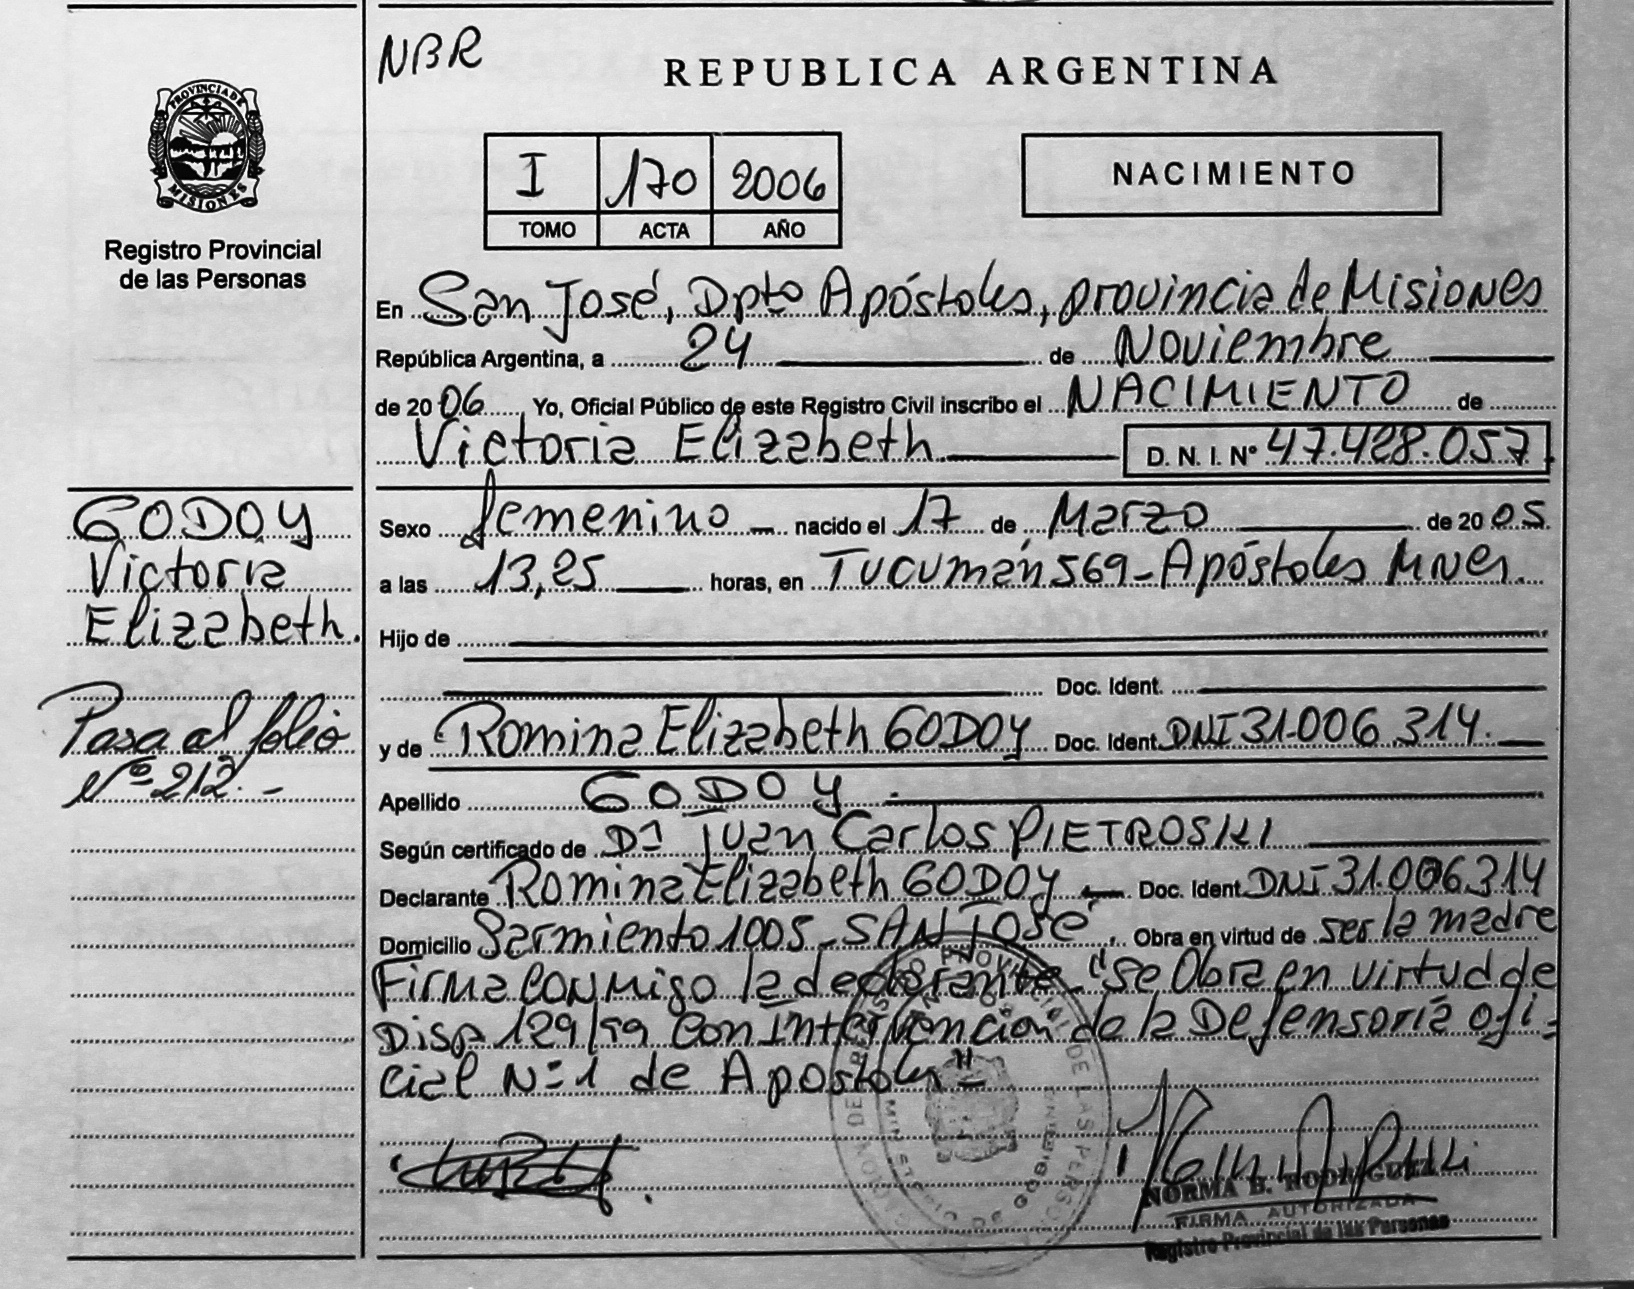 NBR
REPUBLICA ARGENTINA
PROVINCIA DE
MISIONES
Registro Provincial
de las Personas
I 170 2006
TOMO ACTA AÑO
NACIMIENTO
En San José, Dpto Apóstoles, provincia de Misiones
República Argentina, a 24 de Noviembre
de 2006 Yo, Oficial Público de este Registro Civil inscribo el NACIMIENTO de
Victoria Elizabeth D. N. I. Nº 47.428.057
GODOY
Victoria
Elizabeth.
Pasa al folio
Nº 212.-
Sexo femenino nacido el 17 de Marzo de 2005
a las 13,25 horas, en Tucumán 569 - Apóstoles Mnes.
Hijo de
Doc. Ident.
y de Romina Elizabeth GODOY Doc. Ident. DNI 31.006.314.
Apellido GODOY.
Según certificado de Juan Carlos PIETROSKI
Declarante Romina Elizabeth GODOY Doc. Ident. DNI 31.006.314
Domicilio Sarmiento 1005 - SAN JOSÉ. Obra en virtud de ser la madre
Firma conmigo la declarante "Se Obra en virtud de
Disp. 129/99 con Intervención de la Defensoría ofi-
cial Nº 1 de Apostoles"-
NORMA B. RODRIGUEZ
FIRMA AUTORIZADA
Registro Provincial de las Personas